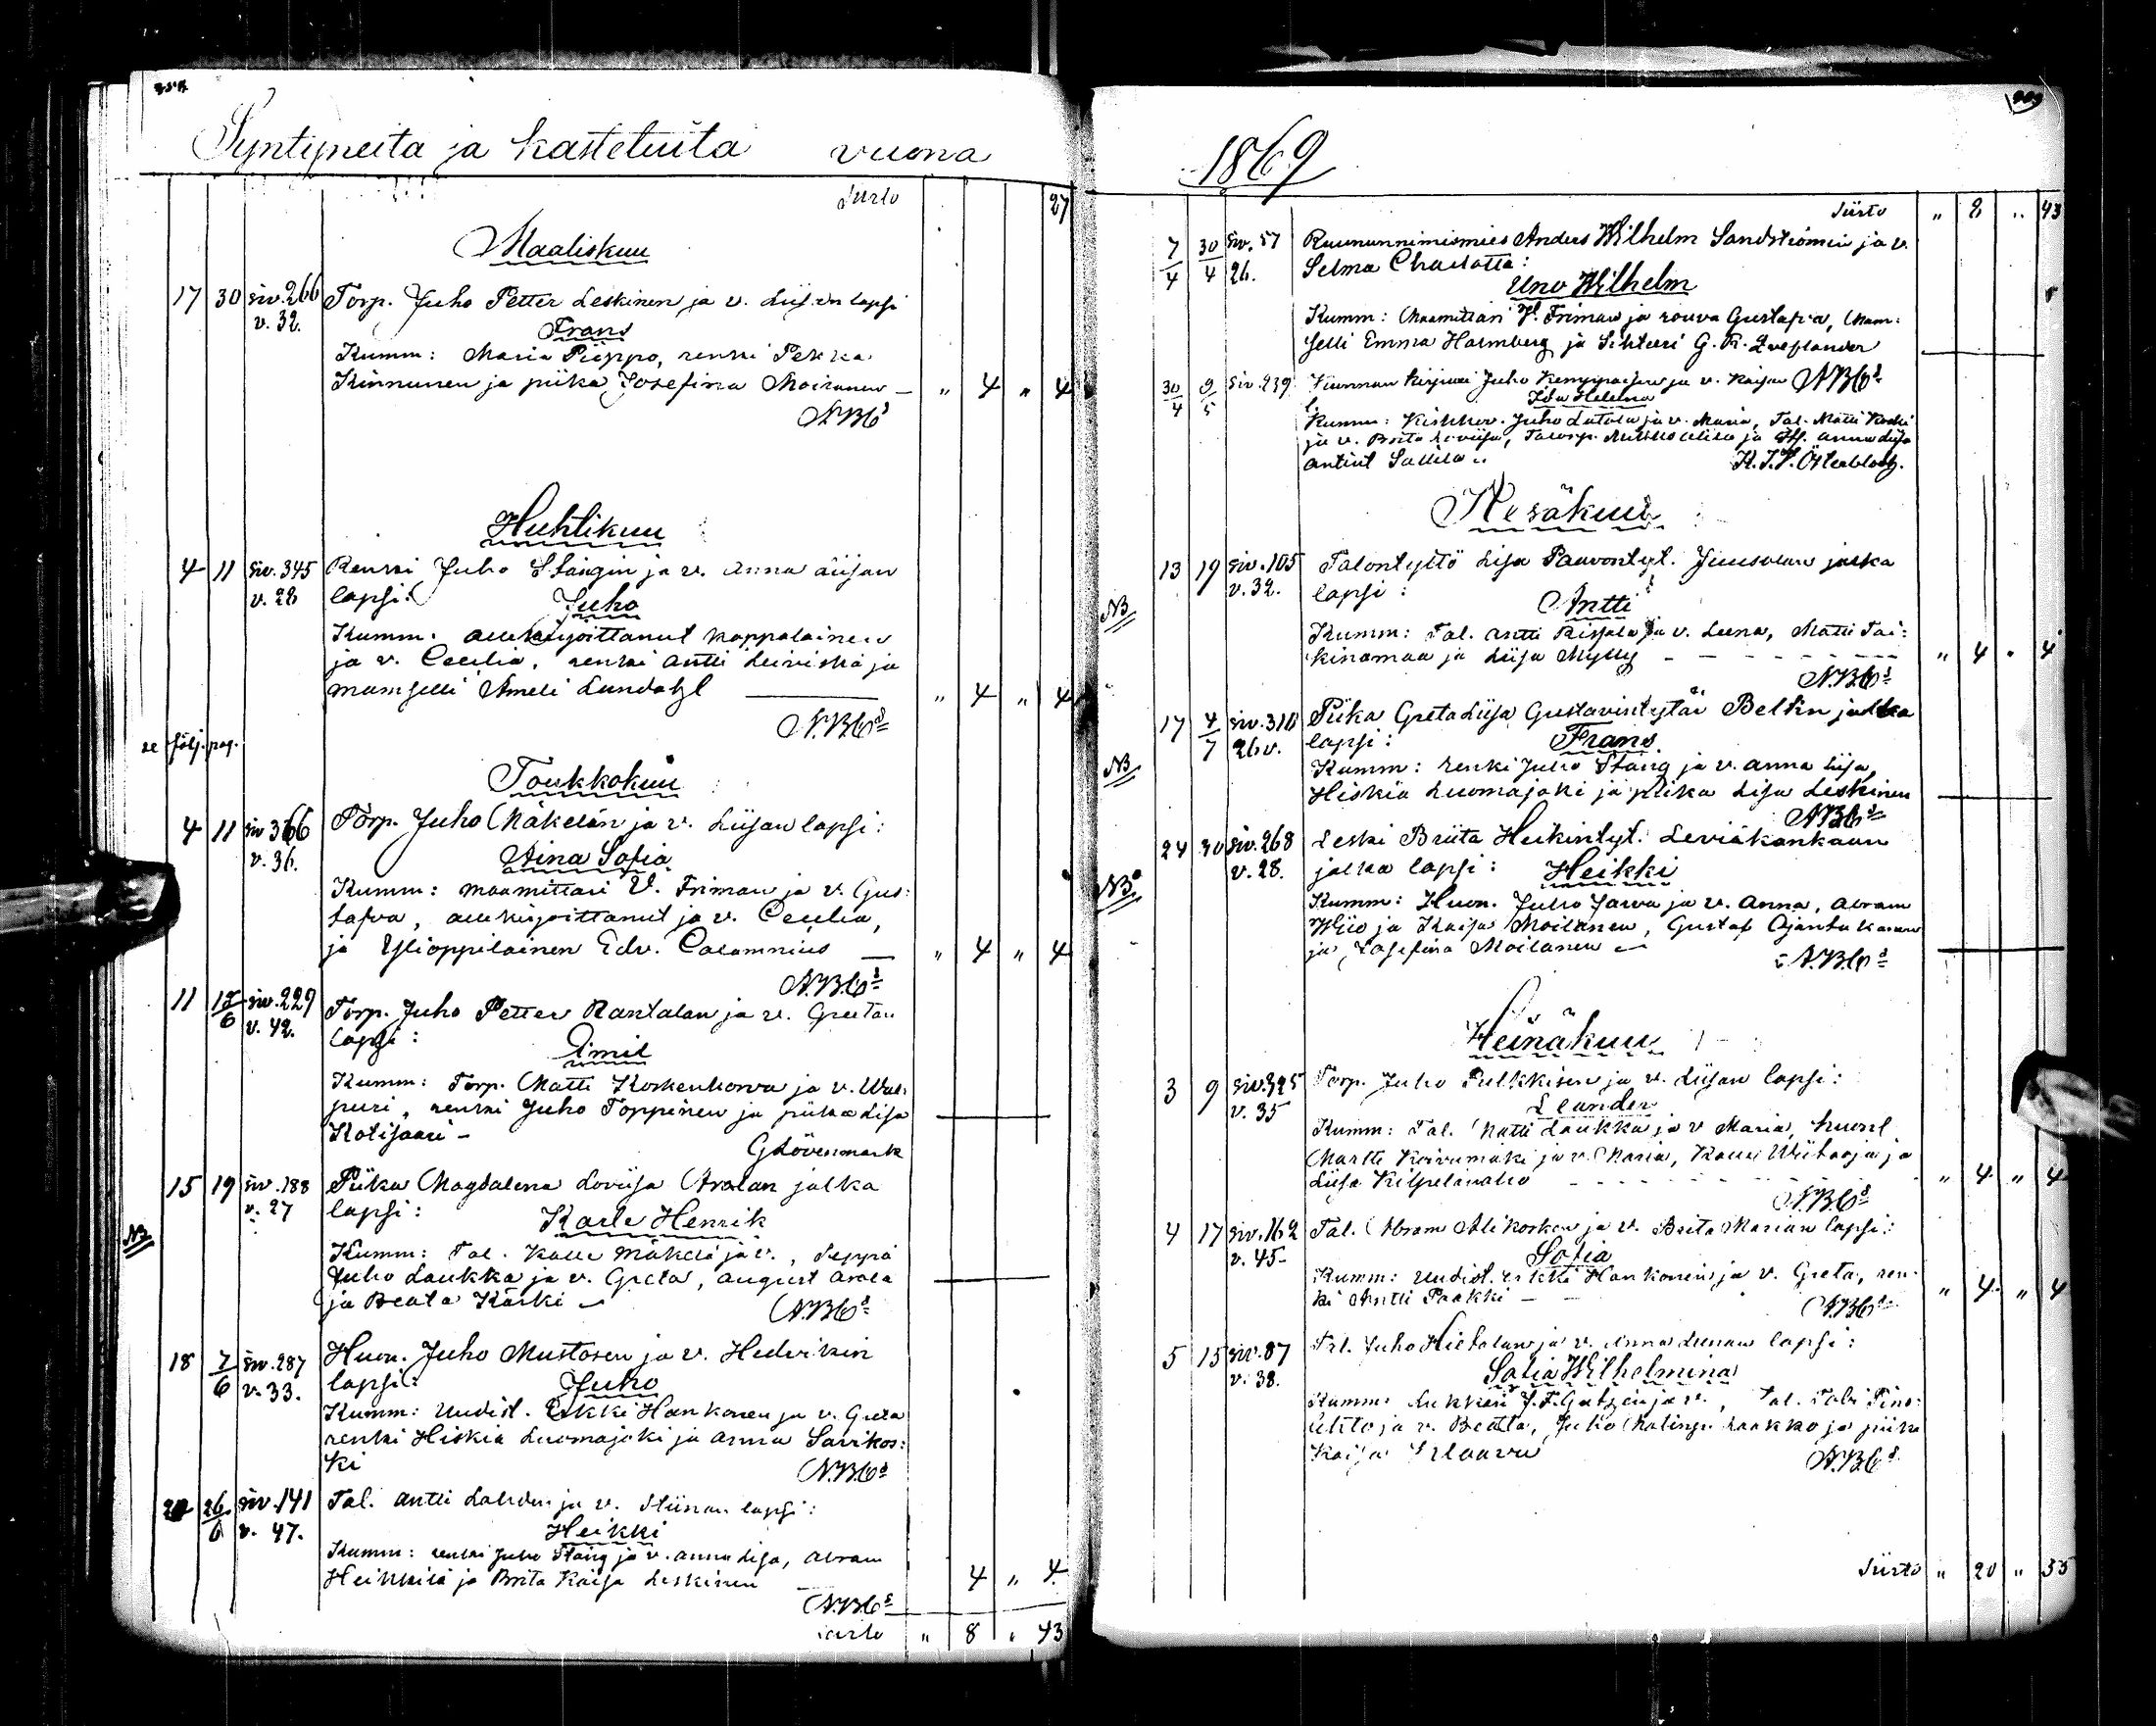 Syntyneitä ja kastetuita vuona
Siirto 27
Maaliskuu
17 30 siv. 266 Torp. Juho Petter Leskinen ja v. Liisan lapsi
v. 32.
Frans
Kumm: Maria Piippo, renki Pekka
Kinnunen ja piika Josefina Moilanen — " 4 " 4
Huhtikuu
4 11 siv. 345 Renki Juho Stångin ja v. Anna Liisan
v. 28 lapsi:
Juho
Kumm: allekirjoittanut kappalainen
ja v. Cecilia, renki Antti Leiviskä ja
mamselli Ameli Lundahl — " 4 " 4
N.B.C:s
se följ. pag.
Toukkokuu
4 11 siv 366 Torp. Juho Mäkelän ja v. Liisan lapsi:
v. 36.
Aina Sofia
Kumm: maamittari V. Friman ja v. Gus:
tafva, allekirjoittanut ja v. Cecilia,
ja Ylioppilainen Edv. Calamnius — " 4 " 4
N.B.C:s
11 siv. 229 Torp. Juho Petter Rantalan ja v. Greetan
v. 42. lapsi:
Emil
Kumm: Torp. Matti Koskenkorva ja v. Wal:
puri, renki Juho Toppinen ja piika Lisa
Kotisaari —
G Lövenmark
15 19 siv. 188 Piika Magdalena Loviisa Aralan jalka
v. 27 lapsi:
Karle Henrik
NB
Kumm: Tal. Kalle Mäkelä ja v., Seppä
Juho Laukka ja v. Greta, August Arala
ja Beata Kärki —
N.B.C:s
18 7/6 siv. 287 Huon. Juho Mustosen ja v. Hedvikin
v. 33. lapsi:
Juho
Kumm: Uudist. Erkki Hankonen ja v. Greta
renki Hiskia Luomajoki ja Anna Sarikos:
ki
N.B.C:s
26/6 siv. 141 Tal. Antti Lahden ja v. Stiinan lapsi:
v. 47.
Heikki
Kumm: renki Juho Stång ja v. Anna Lisa, Abram
Heikkilä ja Brita Kaisa Leskinen 4 " 4
N.B.C:s
Siirto " 8 " 43
1869
Siirto " 8 " 43
7/4 30/4 siv. 57 Ruununnimismies Anders Wilhelm Sandströmin ja v.
26. Selma Charlotta:
Uno Wilhelm
Kumm: Maamittari V. Friman ja rouva Gustafva, Mam:
selli Emma Holmberg ja Sihteeri G. R.
30/4 9/5 siv. 239 Kunnan kirjuri Juho Kemppaisen ja v. Kaisan N.B.C:s
Ida Helena
Kumm: Juho Latola ja v. Maria, Tal. Matti Koski
ja v. Brita Loviisa, ja Anna Liisa
K. J. V. Österbladh.
Kesäkuu
13 19 siv. 105 Talontyttö Lisa Paavontyt. Juusolan jalka
v. 32. lapsi:
Antti
NB
Kumm: Tal. Antti Rissala ja v. Leena, Matti Tai:
kinamaa ja Liisa Mylly " 4 " 4
N.B.C:s
17 4/7 siv. 310 Piika Greta Liisa Gustavintytär Beltin jalka
26 v. lapsi:
Frans
NB
Kumm: renki Juho Stång ja v. Anna Liisa,
Hiskia Luomajoki ja piika Lisa Leskinen
N.B.C:s
24 30 siv. 268 Leski Briita Heikintyt. Leviäkankaan
v. 28. jalka lapsi: Heikki
NB
Kumm: Huon. Juho Jarva ja v. Anna, Abram
Wiio ja Kaisa Moilanen, Gustaf
ja Josefina Moilanen —
N.B.C:s
Heinäkuu
3 9 siv. 325 Torp. Juho Pulkkisen ja v. Liisan lapsi:
v. 35
Leander
Kumm: Tal. Matti Laukka ja v Maria, huonl
Martti Koivumäki ja v. Maria, Kalle Wiitaoja ja
Liisa Kilpelänaho " 4 " 4
N.B.C:s
4 17 siv. 162 Tal. Abram Alikosken ja v. Brita Marian lapsi:
v. 45
Sofia
Kumm: Uudist. Erkki Hankonen ja v. Greta, ren:
ki Antti Paakki " 4 " 4
N.B.C:s
5 15 siv. 87 Tal. Juho Hietalan ja v. Anna Leenan lapsi:
v. 38.
Sofia Wilhelmina
Kumm: Lukkari ja v., Tal.
ja v. Beatta, Juho ja piika
Kaisa
N.B.C:s
Siirto " 20 " 55